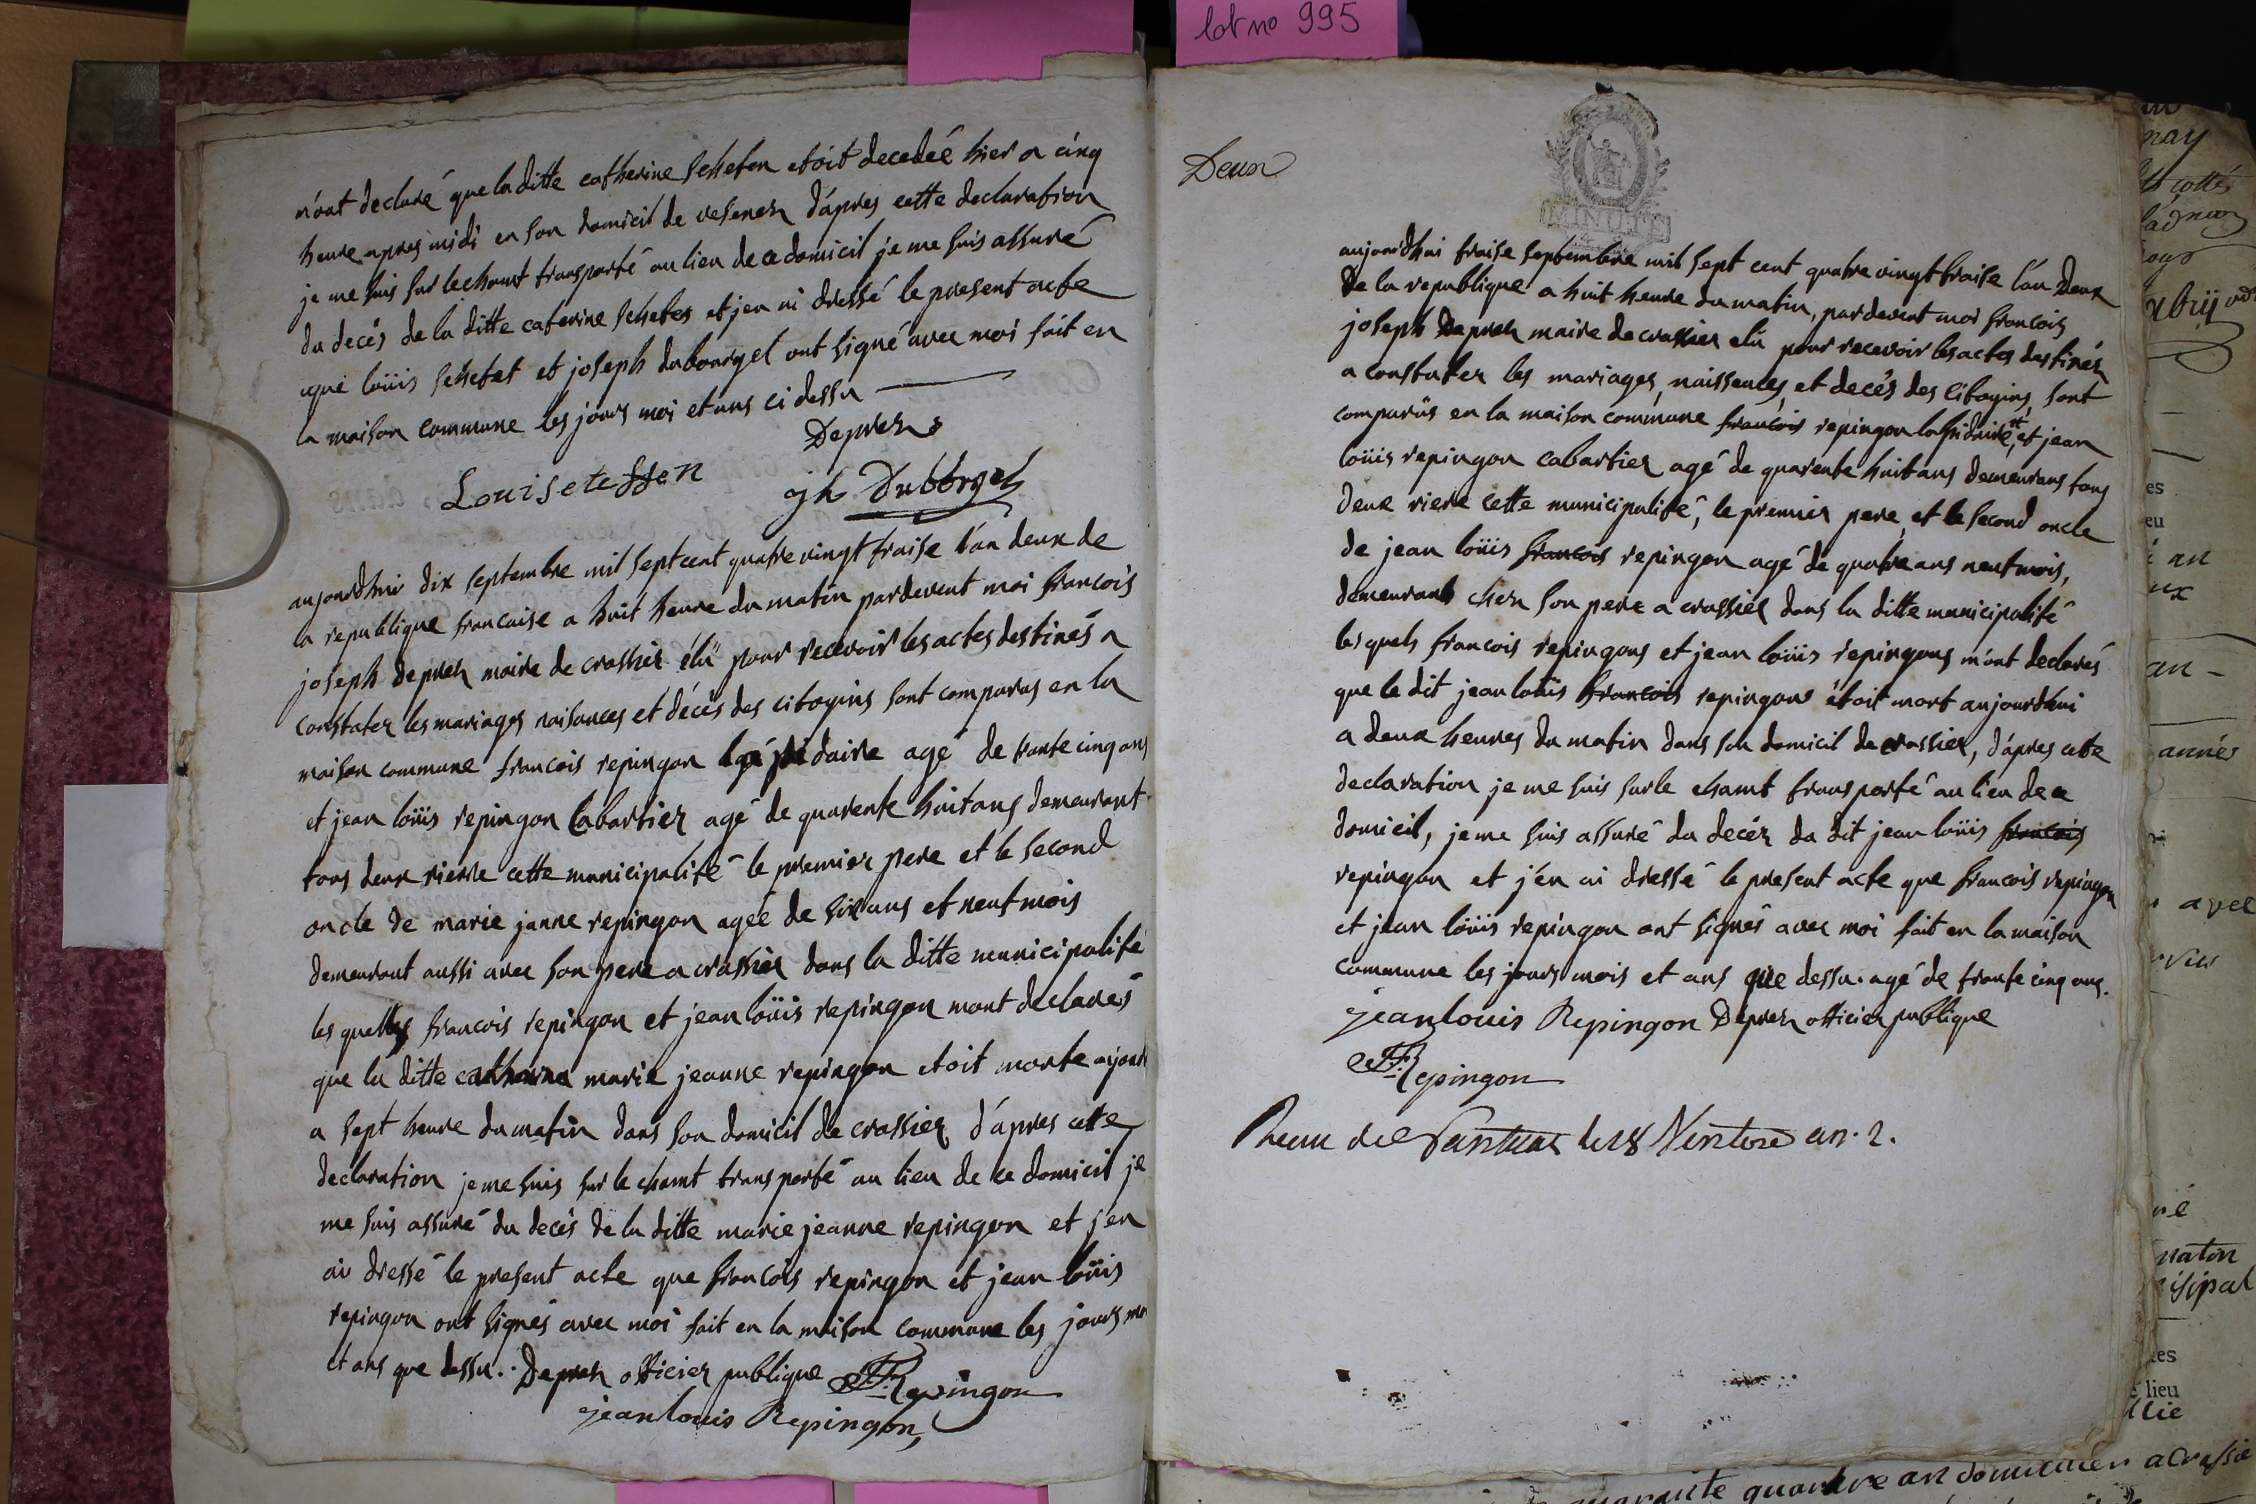 lot no 995
m'ont declaré que la ditte catherine Schefen etoit decedeé hier a cinq
heure apres midi en son domicil de vesenex d'apres cette declaration
je me suis sur le chamt transporté au lieu de ce domicil je me suis assuré
du decés de la ditte caterine Schefes et jen ai dressé le present acte
que loüis Schefet et joseph dubourgel ont signé avec moi fait en
la maison commune les jours moi et ans ci dessu
Deprez
Louis etessen
jh Dubborgel
aujourdhui dix septembre mil sept cent quatre vingt traise l'an deux de
la republique francaise a huit heure du matin pardevent moi francois
joseph deprez maire de crassier élü pour recevoir les actes destinés a
constater les mariages naisances et décés des citoyins sont comparus en la
maison commune francois repingon lapidaire agé de trante cinq ans
et jean loüis repingon Cabartier agé de quarente huit ans demeurant
tous deux rierre cette municipalité le premier pere et le second
oncle de marie janne repingon ageé de six ans et neuf mois
demeurant aussi avec son pere a crassier dans la ditte municipalité
les quelles francois repingon et jean loüis repingon mont declarés
que la ditte catherine marie jeanne repingon etoit morte aujourd
a sept heure du matin dans son domicil de crassier d'apres cette
declaration je me suis sur le chamt transporté au lieu de ce domicil je
me suis assuré du decés de la ditte marie jeanne repingon et j'en
ai dressé le present acte que francois repingon et jean loüis
repingon ont signés avec moi fait en la maison commune les jours moi
et ans que dessu. Deprez officier publique Repingon
jean louis Repingon
Deux
MINUTES
aujourdhui traise septembre mil sept cent quatre vingt traise l'an deux
de la republique a huit heure du matin, pardevent moi francois
joseph deprez maire de crassier elü pour recevoir les actes destinés
a constater les mariages, naissences, et decés des citoyins, sont
comparüs en la maison commune francois repingon lapidaire, et jean
loüis repingon cabartier agé de quarente huit ans demeurans tous
deux riere cette municipalité, le premier pere, et le second oncle
de jean loüis francois repingon agé de quatre ans neuf mois,
demeurant chez son pere a crassier dans la ditte municipalité
lesquels francois repingons et jean loüis repingons m'ont declarés
que le dit jean loüis francois repingons étoit mort aujourdhui
a deux heures du matin dans son domicil de crassier, d'apres cette
declaration je me suis sur le chamt transporté au lieu de ce
domicil, je me suis assuré du decéz du dit jean loüis francois
repingon et j'en ai dressé le present acte que francois repingon
et jean loüis repingon ont signés avec moi fait en la maison
commune les jours mois et ans que dessu. agé de trante cinq ans.
jean louis Repingon Deprez officier publique
Repingon
le 18 Ventose an. 2.